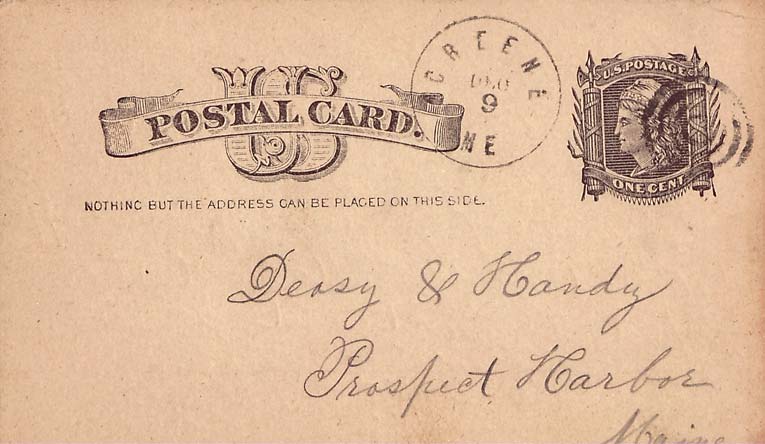 US
POSTAL CARD.
NOTHING BUT THE ADDRESS CAN BE PLACED ON THIS SIDE.
GREENE
DEC
9
ME
U.S. POSTAGE
ONE CENT
Deasy & Handy
Prospect Harbor
Maine